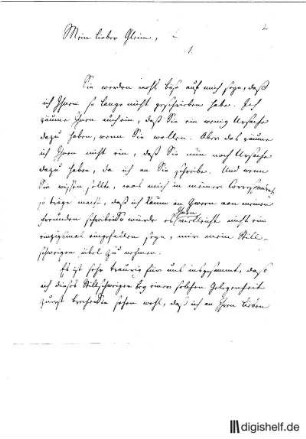 Mein lieber Gleim,
Sie werden wohl bös auf mich seyn, daß
ich Ihnen so lange nicht geschrieben habe. Ich
räume Ihnen auch ein, daß Sie ein wenig Ursache
dazu haben, wenn Sie wollen. Aber das räume
ich Ihnen nicht ein, daß Sie nun noch Ursache
dazu haben, da ich an Sie schreibe. Und wenn
Sie wissen sollte, was mich in meiner Correspondenz
so träge macht, daß ich kaum an
Freunden schreibe würde es Ihnen vielleicht nicht ein
einzigmal eingefallen seyn, mir mein Still-
schweigen übel zu nehmen.
Es ist sehr traurig für uns insgesammt, daß
ich dieses Stillschweigen bey einer solchen Gelegenheit
zuerst breche. Sie sehen wohl, daß ich an Ihren lieben
digishelf.de